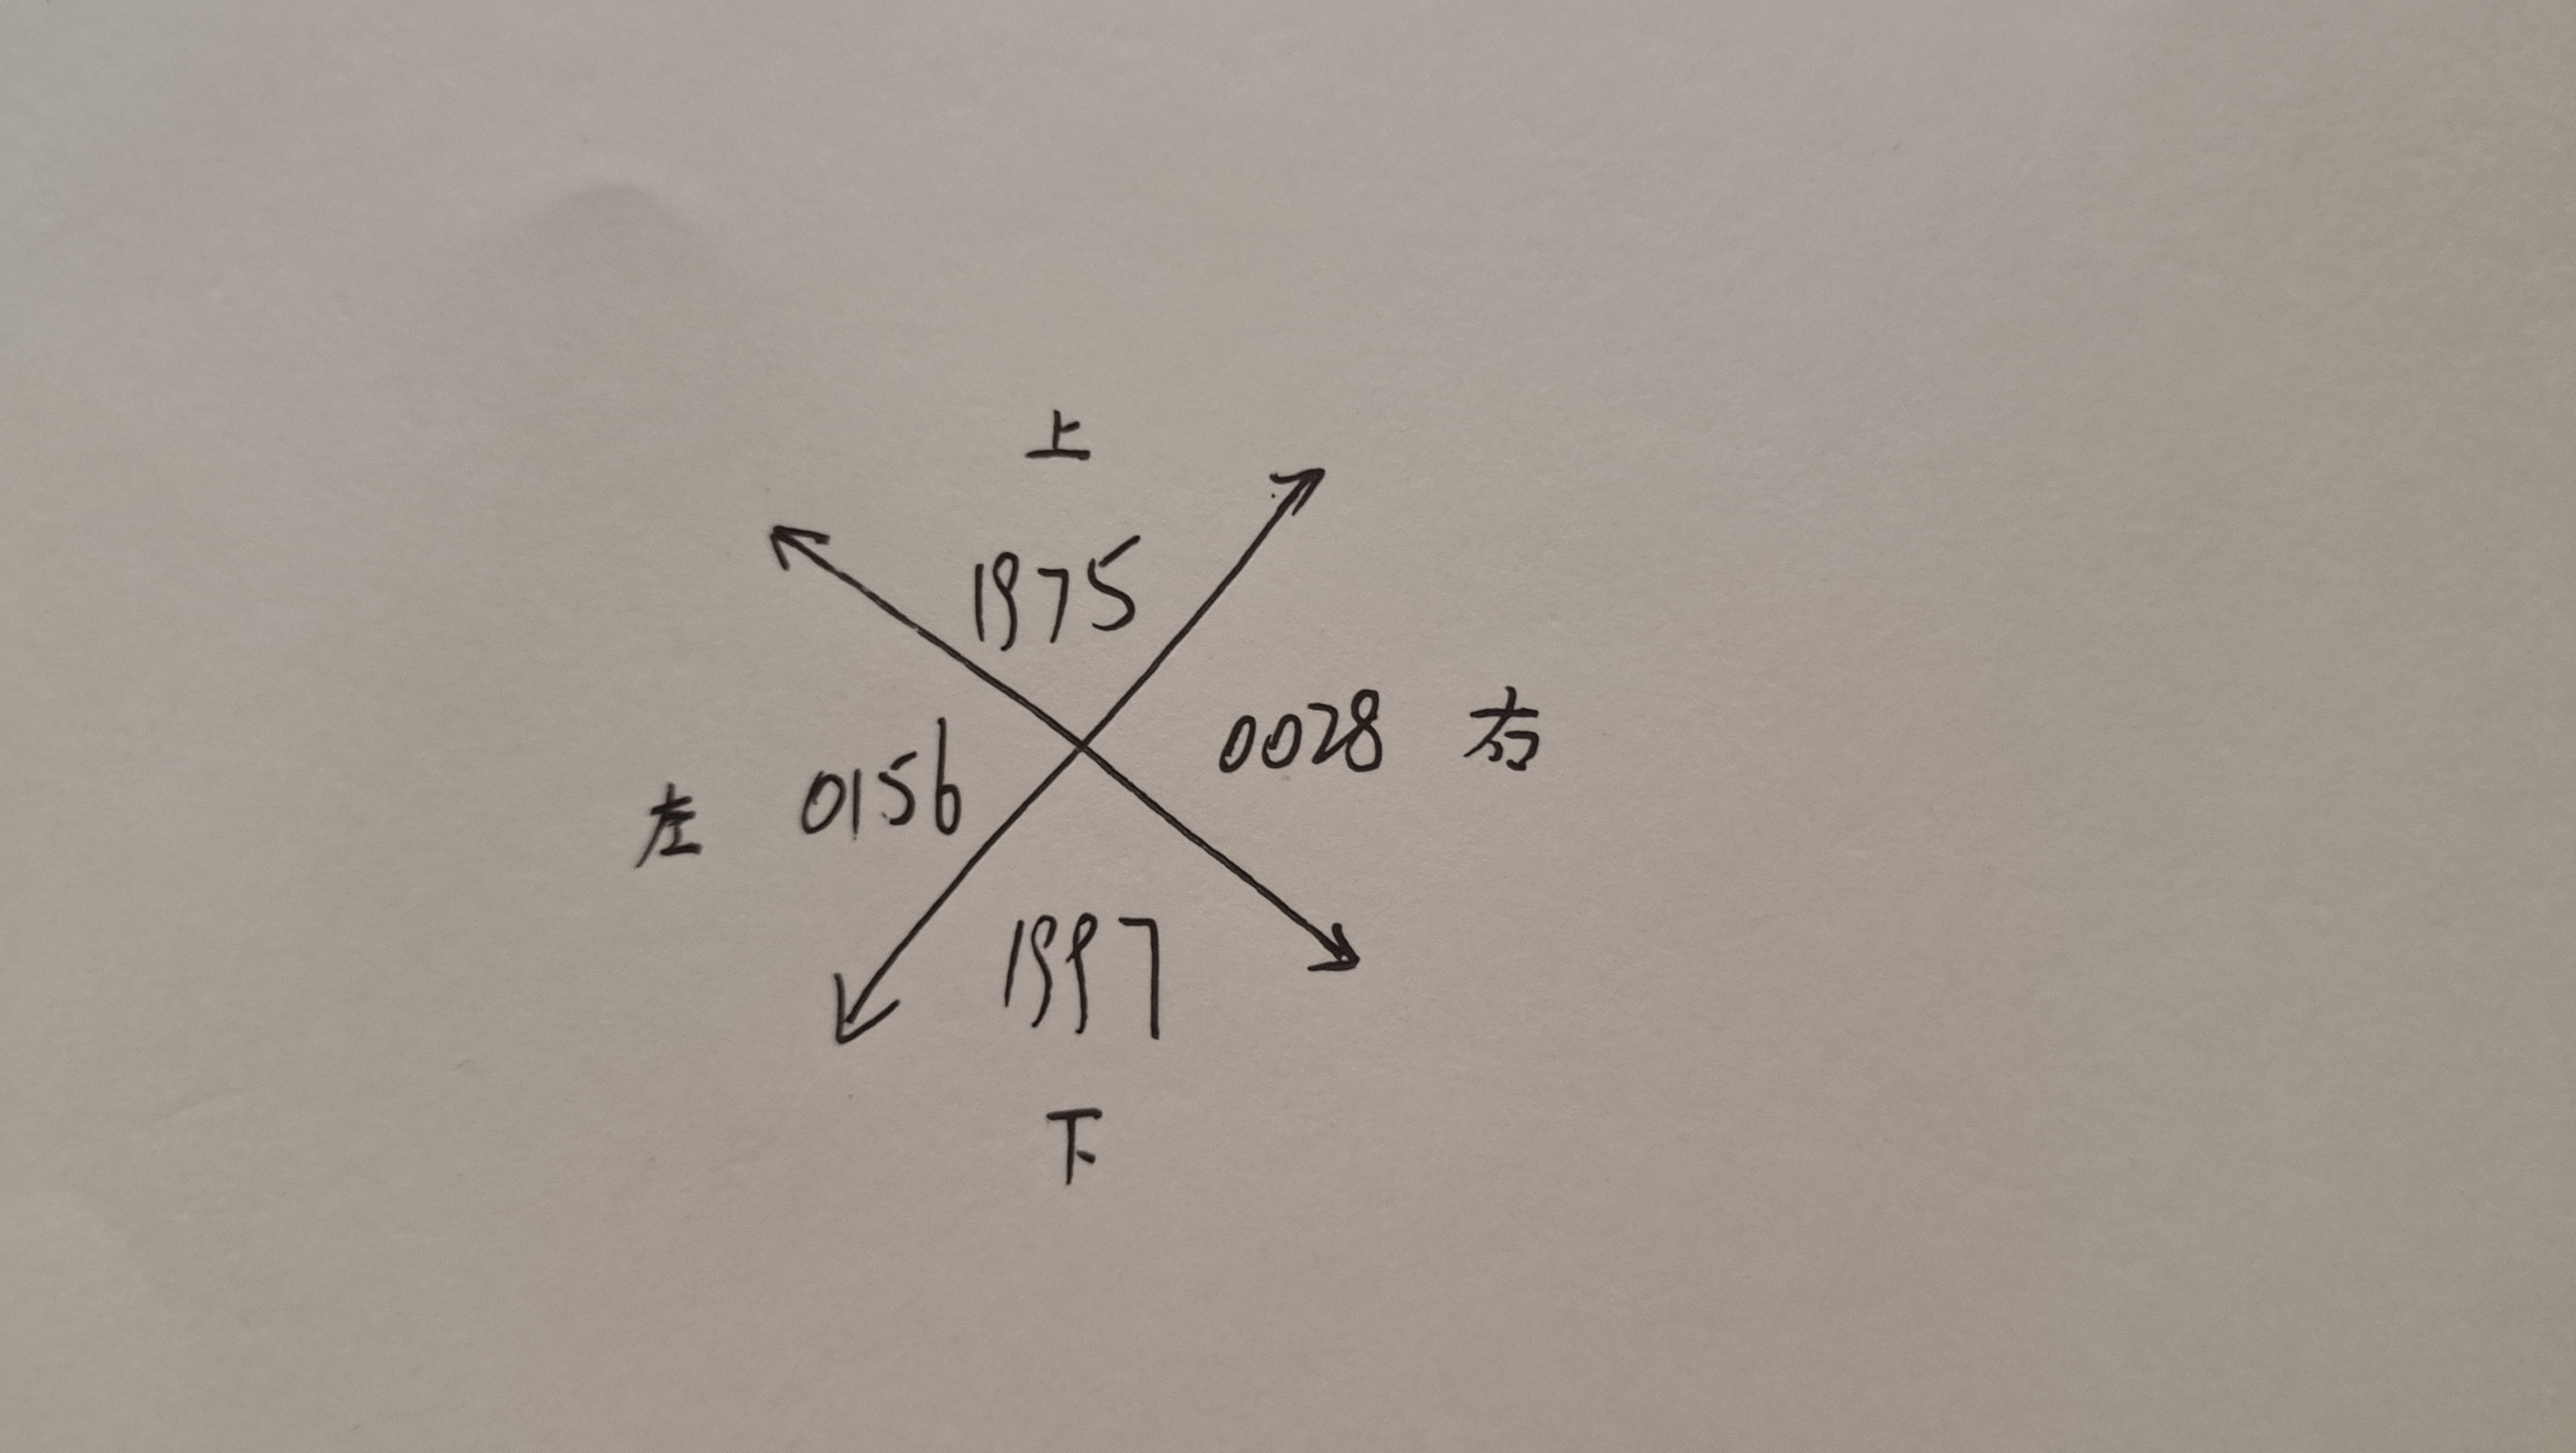 上
1975
0028 右
左 0156
1997
下